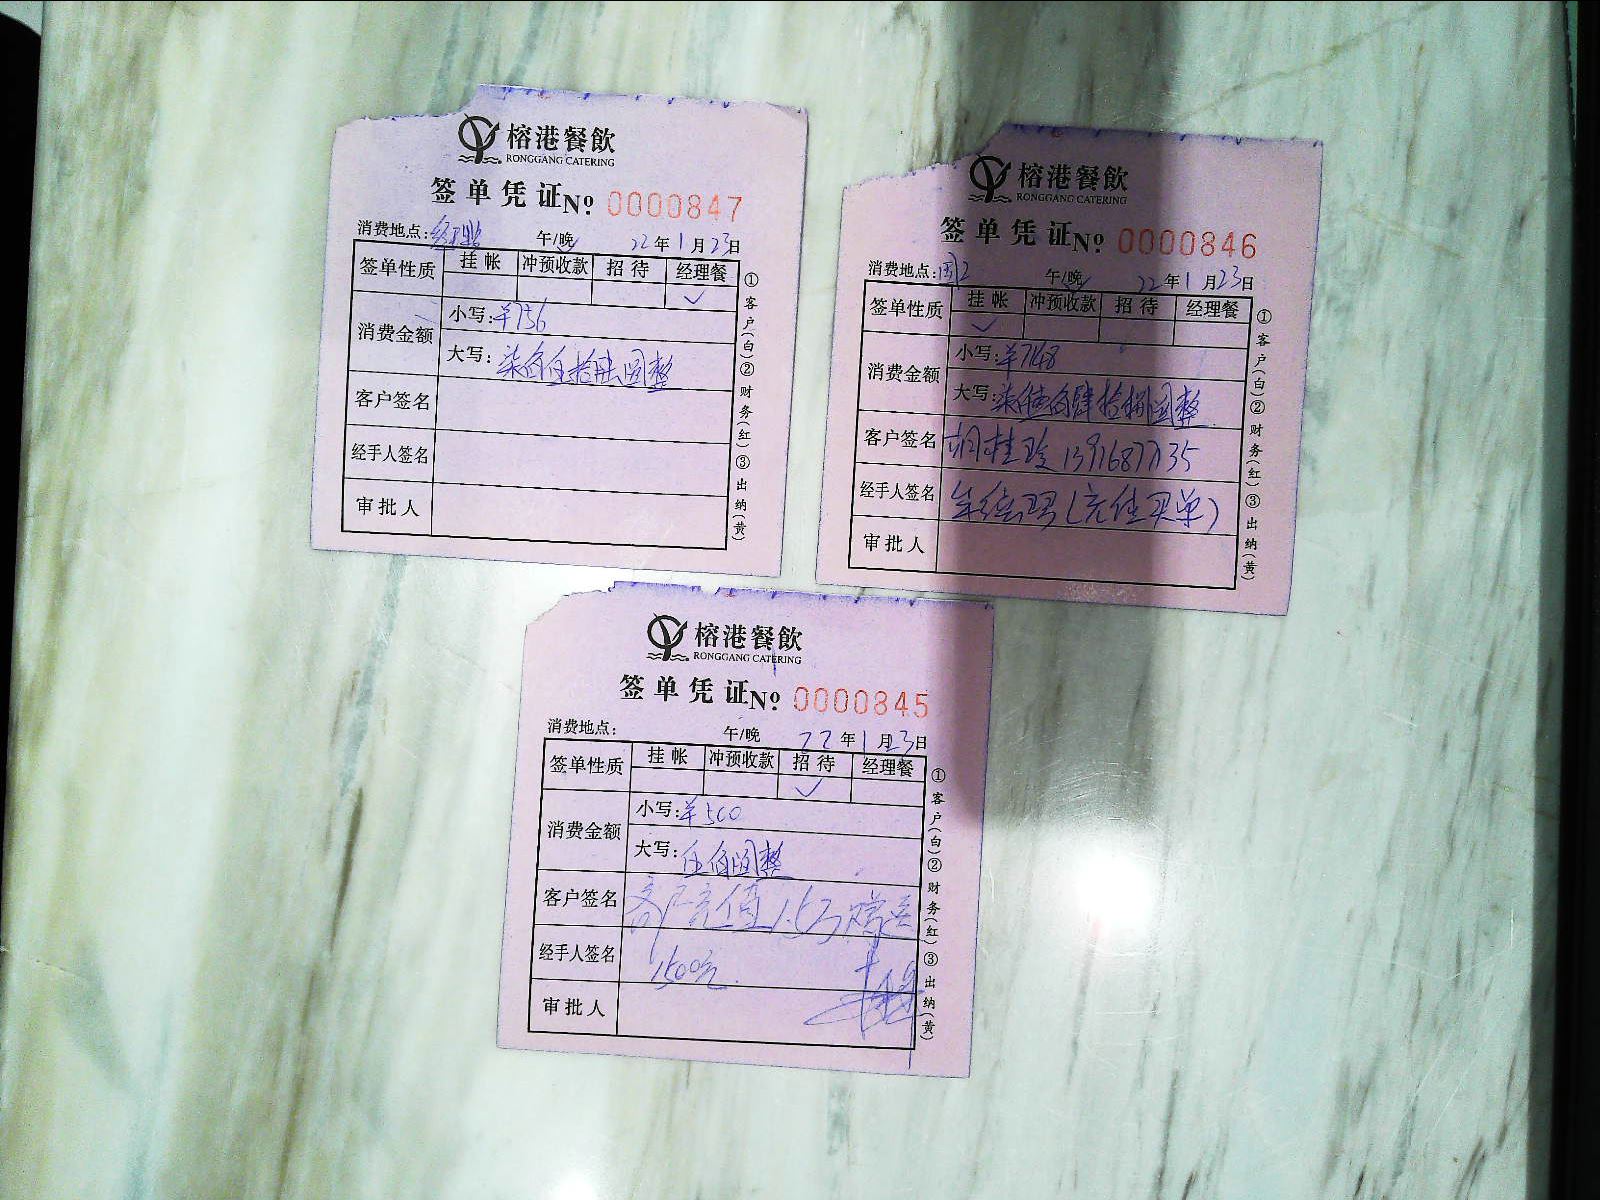 榕港餐飲
RONGGANG CATERING
签单凭证 Nº 0000847
消费地点: 午/晚 22年1月23日
签单性质 挂帐 冲预收款 招待 经理餐
✓
消费金额 小写:¥756
大写: 柒佰伍拾陆圆整
客户签名
经手人签名
审批人
①客户(白)②财务(红)③出纳(黄)
榕港餐飲
RONGGANG CATERING
签单凭证 Nº 0000846
消费地点: 午/晚 22年1月23日
签单性质 挂帐 冲预收款 招待 经理餐
✓
消费金额 小写:¥7148
大写: 柒仟壹佰肆拾捌圆整
客户签名 胡桂
经手人签名 (充值买单)
审批人
①客户(白)②财务(红)③出纳(黄)
榕港餐飲
RONGGANG CATERING
签单凭证 Nº 0000845
消费地点: 午/晚 22年1月23日
签单性质 挂帐 冲预收款 招待 经理餐
✓
消费金额 小写:¥500
大写: 伍佰圆整
客户签名 客户充值1.5万赠送
经手人签名 1500元.
审批人
①客户(白)②财务(红)③出纳(黄)